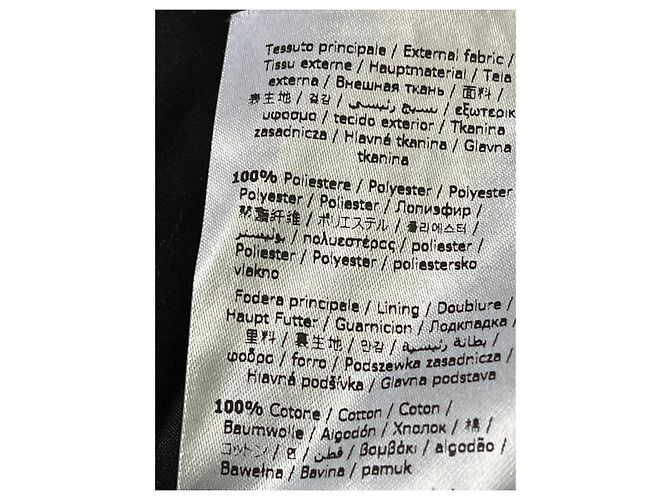 Tessuto principale / External fabric /
Tissu externe / Hauptmaterial / Tela
externa / Внешная ткань / 面料 /
表生地 / 겉감 / نسيج رئيسي / εξωτερικ
υφασμα / tecido exterior / Tkanina
zasadnicza / Hlavná tkanina / Glavna
tkanina
100% Poliestere / Polyester / Polyester
Polyester / Poliester / Лопиэфир /
聚酯纤维 / ポリエステル / 폴리에스터 /
بوليستر / πολυεστέρας / poliester /
Poliester / Polyester / poliestersko
vlakno
Fodera principale / Lining / Doublure /
Haupt Futter / Guarnicion / Лодкладка /
里料 / 裏生地 / 안감 / بطانة رئيسية /
φοδρα / forro / Podszewka zasadnicza /
Hlavná podšívka / Glavna podstava
100% Cotone / Cotton / Coton /
Baumwolle / Algodón / Хлопок / 棉 /
コットン / 면 / قطن / βαμβάκι / algodão /
Bawełna / Bavina / pamuk